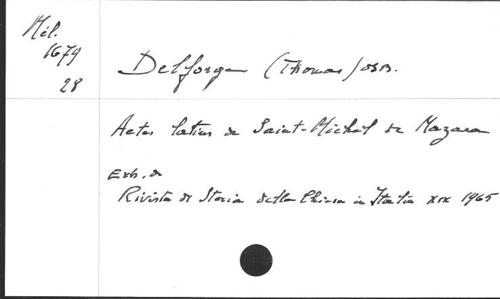 Mél.
1679
28
Delforge (Thomas) OSB.
Actes latins de Saint-Michel de Mazara
Extr. de
Rivista di Storia della Chiesa in Italia XIX 1965